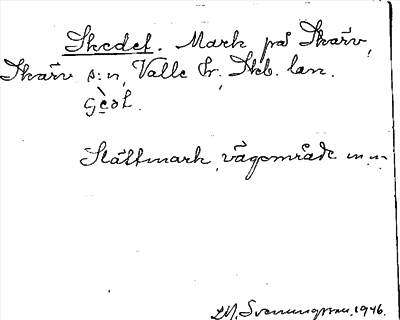 Skedet. Mark på Skärv,
Skärv s:n, Valle hr, Skb. län.
Slättmark, vägområde m.m.
Svenungsson, 1946.